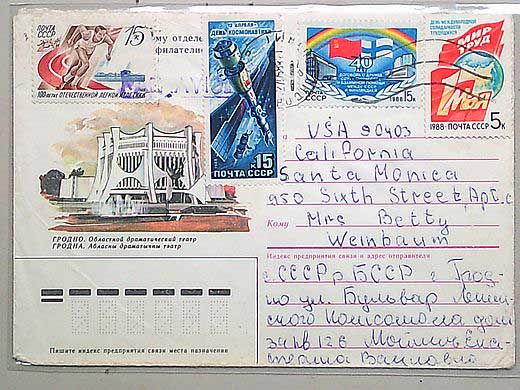 ПОЧТА СССР
15к
100-летие отечественной легкой атлетики
ому отделе
филатели
12 АПРЕЛЯ-
ДЕНЬ КОСМОНАВТИКИ
К 15
ПОЧТА СССР
40 ЛЕТ
ПОЧТА СССР
1988 15К
ДЕНЬ МЕЖДУНАРОДНОЙ СОЛИДАРНОСТИ ТРУДЯЩИХСЯ
МИР
ТРУД
1 МАЯ
1988·ПОЧТА СССР 5к
USA 90403
California
Santa Monica
950 Sixth Street, Apt. c
Кому
Mrs Betty
Weinbaum
ГРОДНО. Областной драматический театр
ГРОДНА. Абласны драматычны тэатр
Индекс предприятия связи и адрес отправителя
с. СССР р. БССР г. Грод-
но ул. Бульвар Ленин-
ского Комсомола дом
кв 126
Пишите индекс предприятия связи места назначения